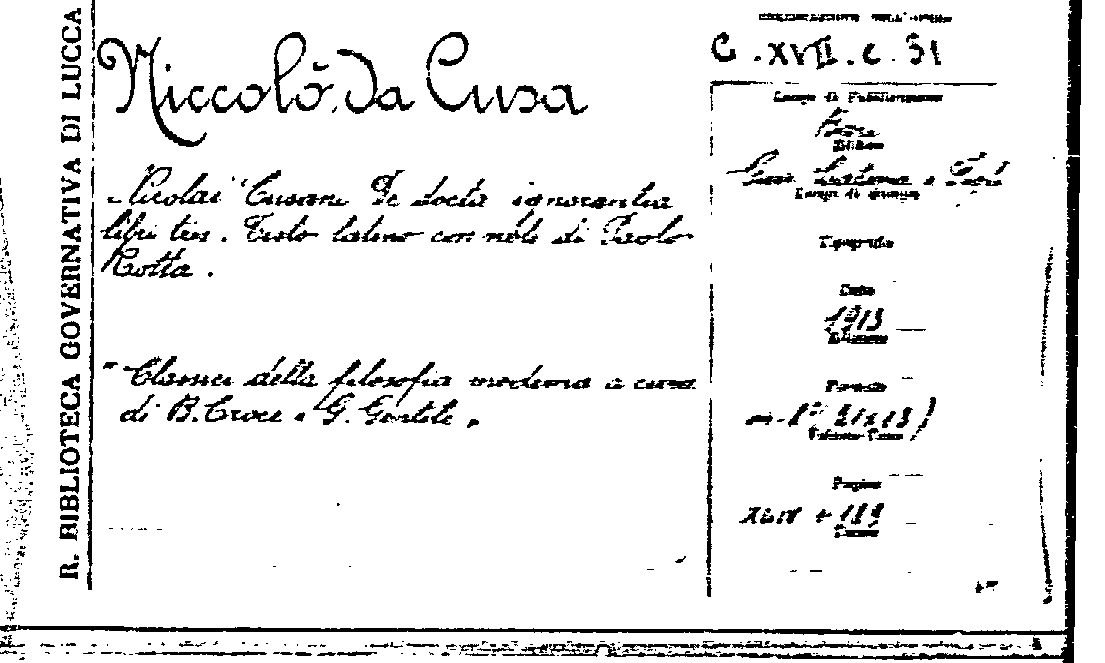 R. BIBLIOTECA GOVERNATIVA DI LUCCA
Niccolò da Cusa
Nicolai Cusani De docta ignorantia
libri tres. Testo latino con note di Paolo
Rotta.
"Classici della filosofia moderna a cura
di B. Croce e G. Gentile"
C. XVII. c. 31
Luogo di Pubblicazione
Bari
Editore
Gius. Laterza e Figli
Luogo di stampa
Tipografia
Data
1913
Edizione
Formato
in-8° (21x13)
Pagine